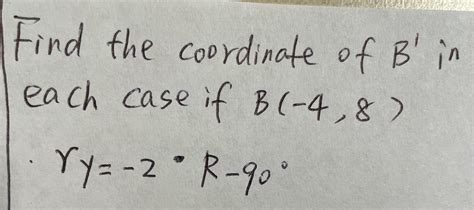 Find the coordinate of B' in
each case if B(-4,8)
. ry=-2 • R-90°